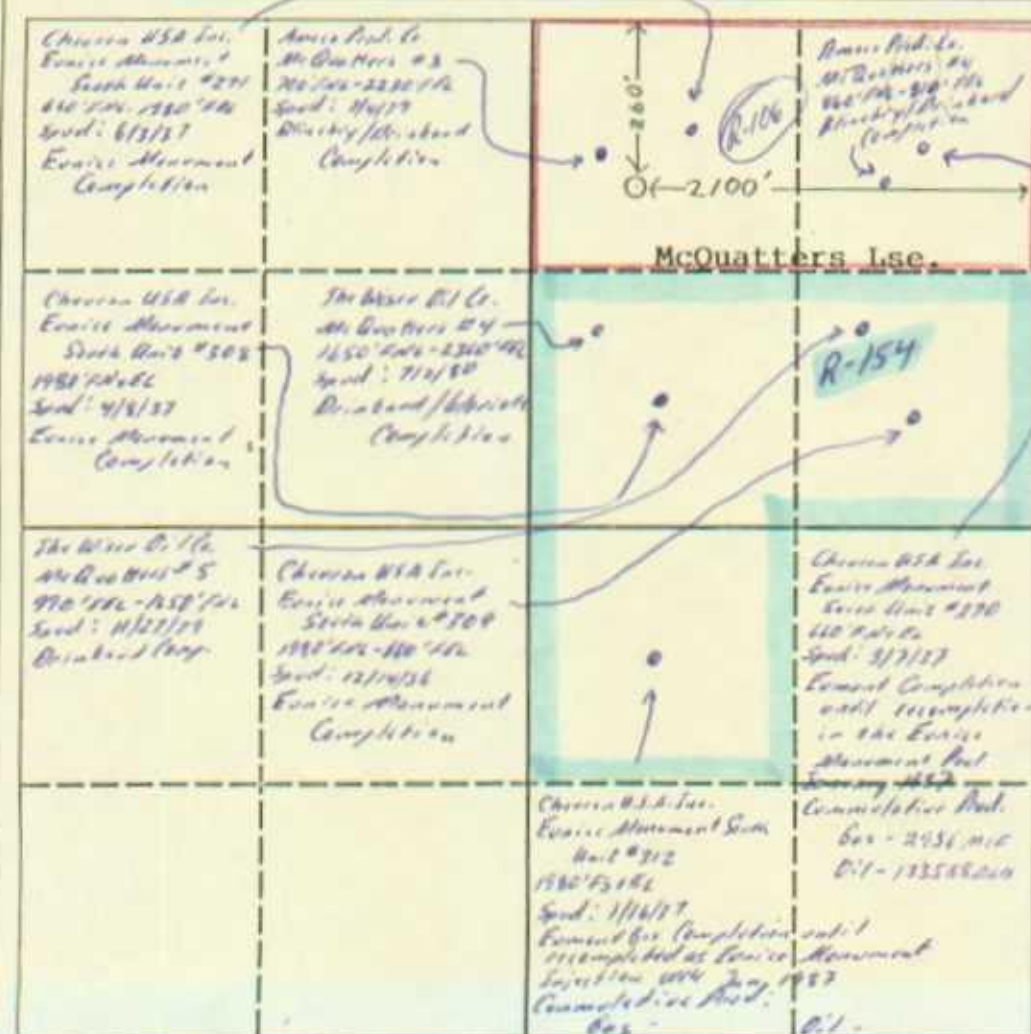 Chevron USA Inc.
Eunice Monument
South Unit #291
660' FNL-1980' FEL
Spud: 6/3/37
Eunice Monument
Completion
Amoco Prod. Co
McQuatters #3
Spud:
Blinebry/Drinkard
Completion
260'
R-106
2100'
Amoco Prod. Co.
McQuatters #4
Blinebry/Drinkard
Completion
McQuatters Lse.
Chevron USA Inc.
Eunice Monument
South Unit #308
1980' FN&EL
Spud: 4/8/37
Eunice Monument
Completion
The Wiser Oil Co.
McQuatters #4
1650' FNL-2360' FEL
Spud: 7/2/80
Drinkard/
Completion
R-154
The Wiser Oil Co.
McQuatters #5
990' FEL-1650' FNL
Spud: 11/27/79
Drinkard Comp.
Chevron USA Inc.
Eunice Monument
South Unit #309
1980' FNL-660' FEL
Spud: 12/14/36
Eunice Monument
Completion
Chevron USA Inc
Eunice Monument
South Unit #290
660' FN&EL
Spud: 3/7/37
Eumont Completion
until recompletion
in the Eunice
Monument Pool
Cummulative Prod.
Gas - 2936 MCF
Oil -
Chevron U.S.A. Inc.
Eunice Monument South
Unit #312
1980' FS&EL
Spud: 1/16/37
Eumont Gas Completion until
recompleted as Eunice Monument
Injection well 1987
Cummulative Prod:
Gas -
Oil -